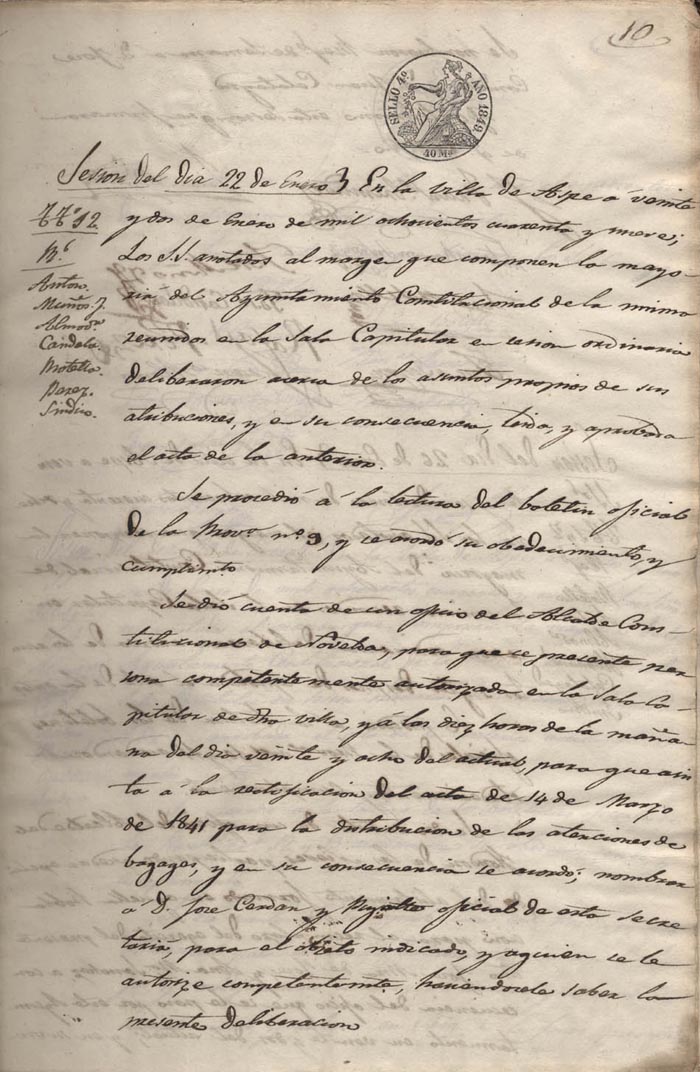 10
SELLO 4º AÑO 1849
40 Ms
Sesion del dia 22 de Enero } En la villa de Aspe á veinte
y dos de Enero de mil ochocientos cuarenta y nueve;
Los S.S. anotados al margen que componen la mayo-
ria del Ayuntamiento Constitucional de la misma
reunidos en la Sala Capitular en sesion ordinaria
deliberaron acerca de los asuntos propios de sus
atribuciones, y en su consecuencia, leida, y aprobada
el acta de la anterior.
Anton.
Muños. J.
Almodr
Candela.
Botella.
Perez.
Sindico.
Se procedió á la lectura del boletin oficial
de la Provª nº 9, y se acordó su obedecimiento, y
cumplimto
Se dió cuenta de un oficio del Alcalde Cons-
titucional de Novelda, para que se presente per
sona competentemente autorizada en la Sala Ca-
pitular de dha villa, y á las diez horas de la maña
na del dia veinte y ocho del actual, para que asis
ta á la rectificacion del acta de 14 de Marzo
de 1841 para la distribucion de las atenciones de
bagages, y en su consecuencia se acordó; nombrar
á D. Jose Cerdan y oficial de esta secre
taria, para el objeto indicado, y aquien se le
autorize competentemte, haciendosele saber la
presente deliberacion